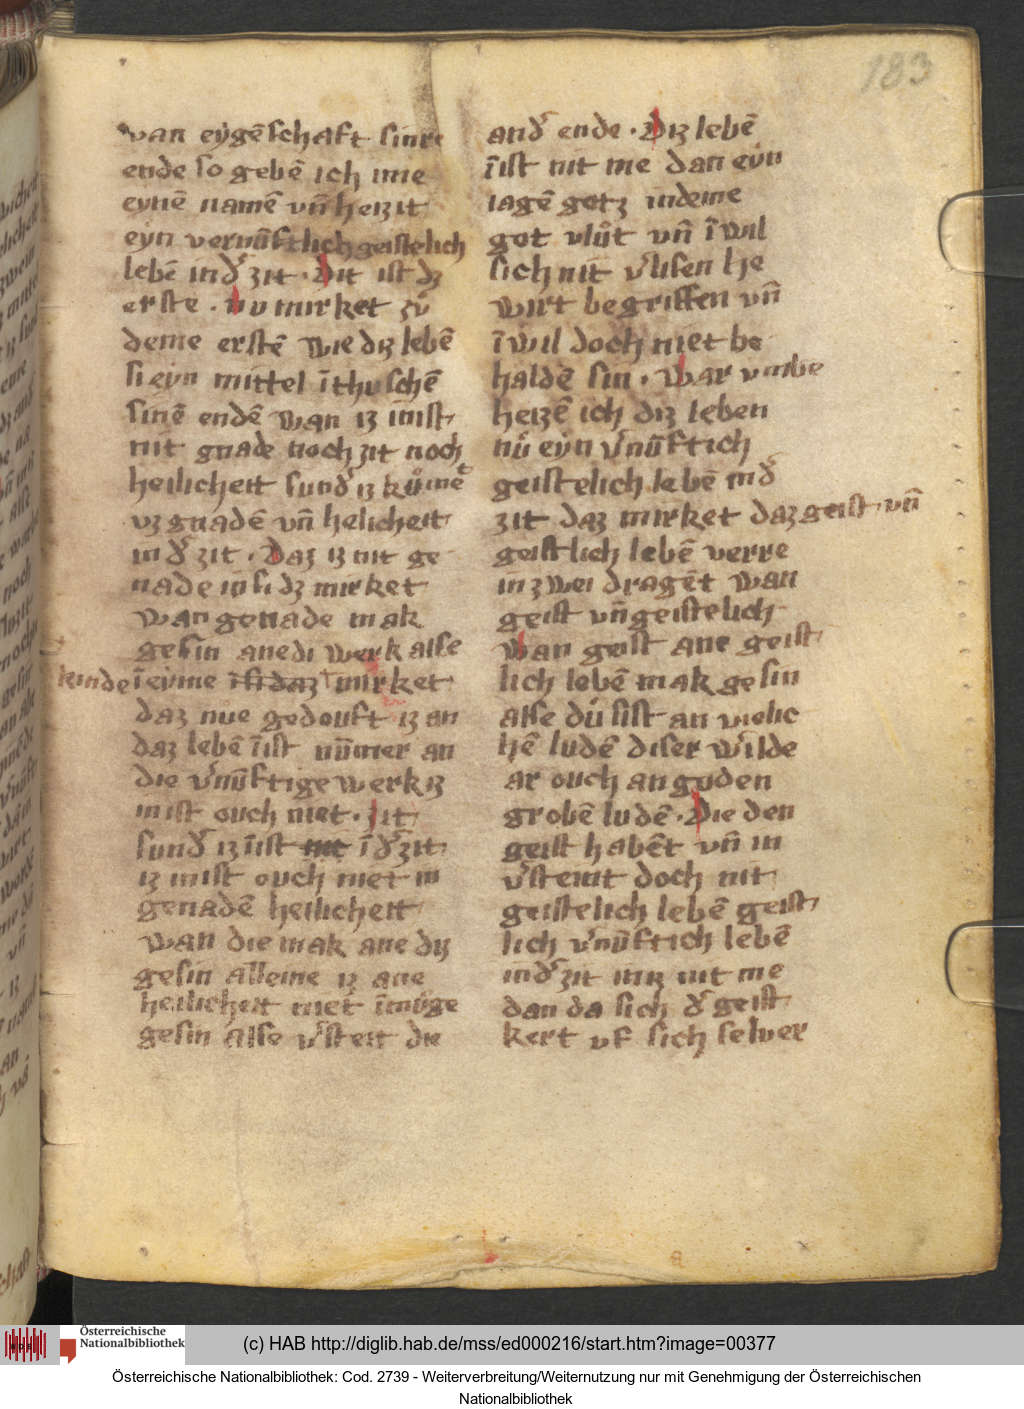 183
van eẏgēschaft sinre
ende so gebē ich ime
eynē namē vn̄ heizit
eyn vernūftlich geistelich
lebē in d᷑ zit · Dit ist dz
erste · nv mirket zv̊
deme erstē wie diz lebē
si eyn mittel ī thuschē
sinē endē wan iz inist
nit gnade noch zit noch
heilicheit sund᷑ iz kv̊met
vz gnadē vn̄ helicheit
in d᷑ zit · Daz iz nit ge
nade in si dz mirket
wan genade mak
gesin ane di werk alse
kinde ī eyme isi daz mirket
daz nue gedouft iz an
daz lebē īist nūmer an
die v᷑nūftige werk iz
inist ouch niet · zit
sund᷑ iz īist nit ī d᷑ zit
iz inist ouch niet in
genadē heilicheit
wan die mak ane diz
gesin alleine iz ane
heilicheit niet īmůge
gesin alse v᷑steit die
and᷑ ende · Diz lebē
īist nit me dan eyn
iagē gotz indeme
got vlůt vn̄ ī wil
sich nit v᷑lisen he
wirt begriffen vn̄
ī wil doch niet be
haldē sin · War vmbe
heizē ich diz leben
nů eyn v᷑nūftich
geistelich lebē in d᷑
zit daz mirket daz geist vn̄
geistlich lebē verre
in zwei dragēt wan
geist vn̄ geistelich
wan geist ane geist
lich lebē mak gesin
alse dů sist an vielic
hē ludē diser werilde
ar ouch an guden
grobē ludē · Die den
geist habēt vn̄ in
v᷑steint doch nit
geistelich lebē geist
lich v᷑nūftich lebē
in d᷑ zit iniz nit me
dan da sich d᷑ geist
kert vf sich selver
(c) HAB http://diglib.hab.de/mss/ed000216/start.htm?image=00377
Österreichische
Nationalbibliothek
Österreichische Nationalbibliothek: Cod. 2739 - Weiterverbreitung/Weiternutzung nur mit Genehmigung der Österreichischen
Nationalbibliothek